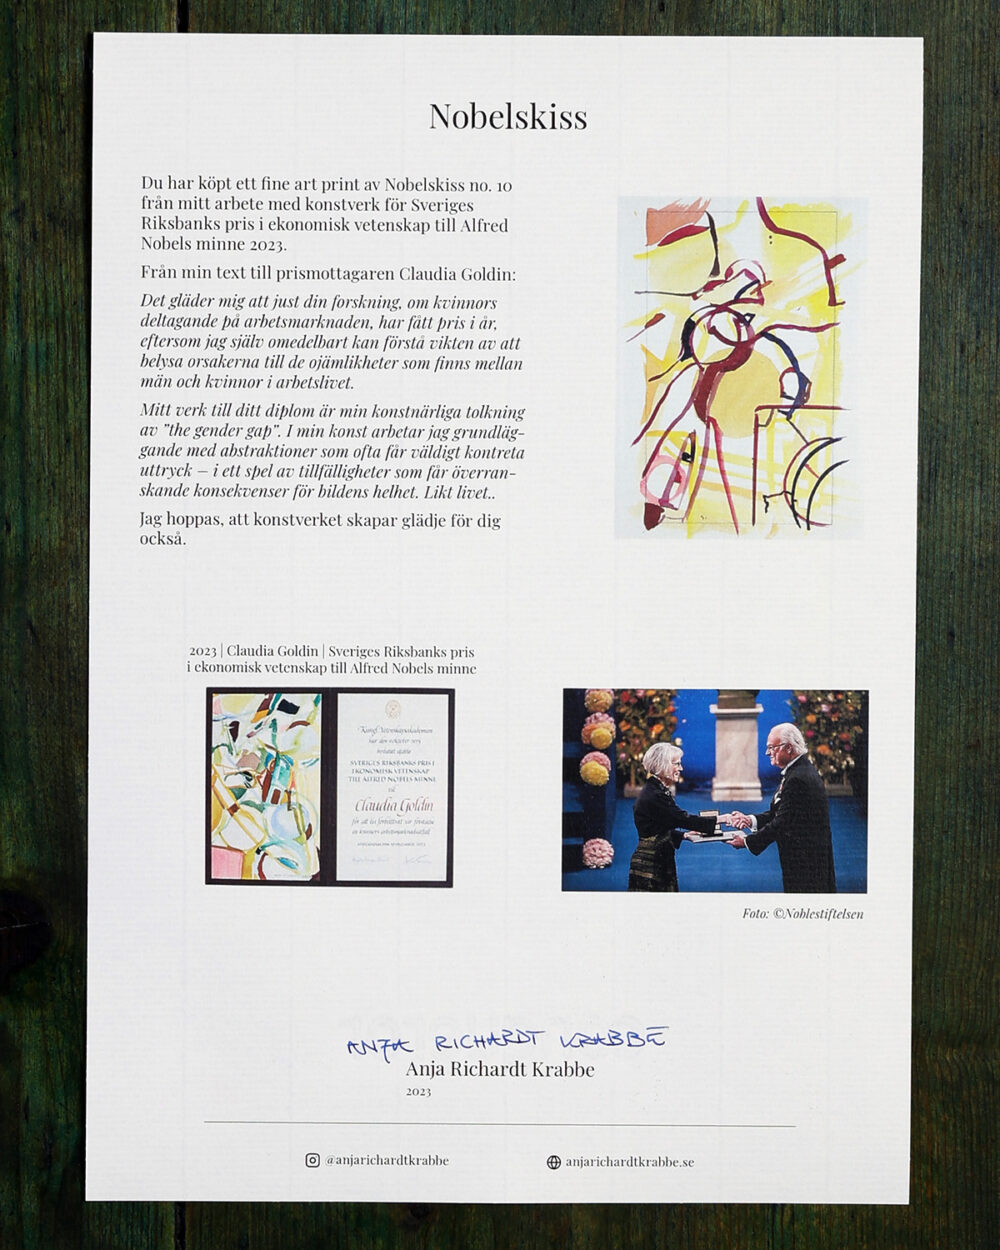 Nobelskiss
Du har köpt ett fine art print av Nobelskiss no. 10
från mitt arbete med konstverk för Sveriges
Riksbanks pris i ekonomisk vetenskap till Alfred
Nobels minne 2023.
Från min text till prismottagaren Claudia Goldin:
Det gläder mig att just din forskning, om kvinnors
deltagande på arbetsmarknaden, har fått pris i år,
eftersom jag själv omedelbart kan förstå vikten av att
belysa orsakerna till de ojämlikheter som finns mellan
män och kvinnor i arbetslivet.
Mitt verk till ditt diplom är min konstnärliga tolkning
av ”the gender gap”. I min konst arbetar jag grundläg-
gande med abstraktioner som ofta får väldigt kontreta
uttryck – i ett spel av tillfälligheter som får överran-
skande konsekvenser för bildens helhet. Likt livet..
Jag hoppas, att konstverket skapar glädje för dig
också.
2023 | Claudia Goldin | Sveriges Riksbanks pris
i ekonomisk vetenskap till Alfred Nobels minne
Kungl. Vetenskapsakademien
har den
beslutat
SVERIGES RIKSBANKS PRIS I
EKONOMISK VETENSKAP
TILL ALFRED NOBELS MINNE
Claudia Goldin
för att ha förbättrat vår förståelse
av kvinnors arbetsmarknadsutfall
Foto: ©Noblestiftelsen
ANJA RICHARDT KRABBE
Anja Richardt Krabbe
2023
@anjarichardtkrabbe
anjarichardtkrabbe.se